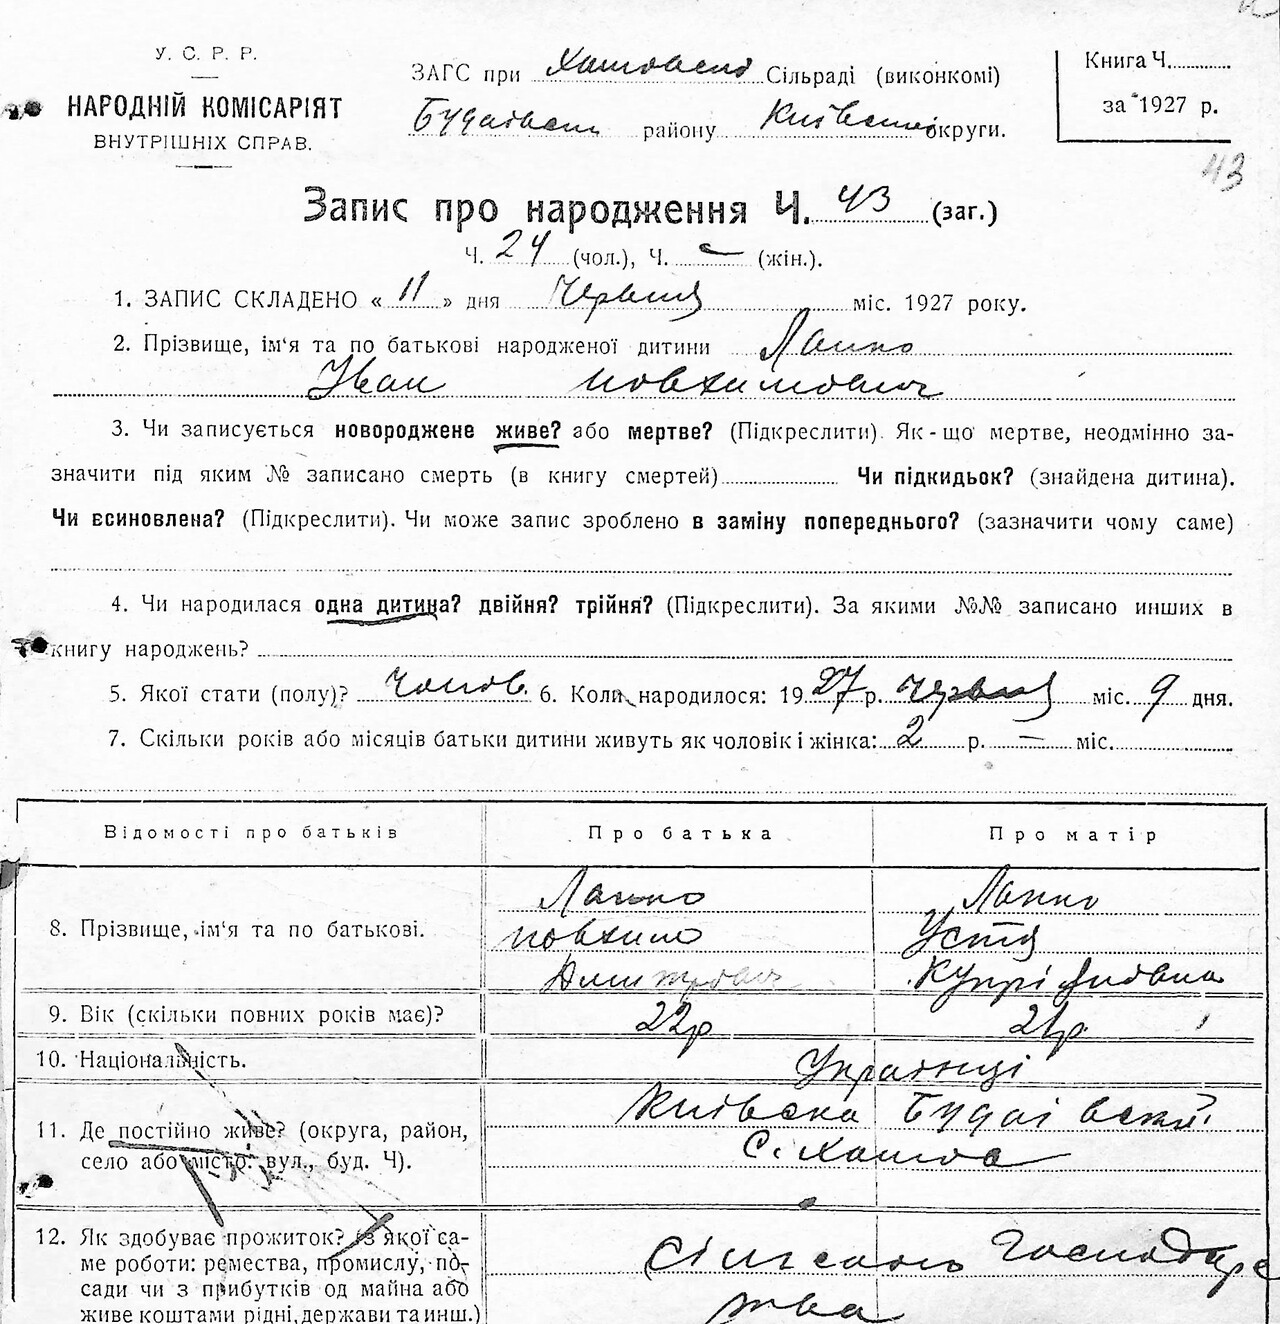 У. С. Р. Р.
НАРОДНІЙ КОМІСАРІЯТ
ВНУТРІШНІХ СПРАВ.
ЗАГС при Хотовській Сільраді (виконкомі)
Будаівськ району Київської округи.
Книга Ч.
за 1927 р.
43
Запис про народження Ч. 43 (заг.)
Ч. 24 (чол.), Ч. – (жін.).
1. ЗАПИС СКЛАДЕНО « 11 » дня Червня міс. 1927 року.
2. Прізвище, ім'я та по батькові народженої дитини Лапко
Іван Човхимович
3. Чи записується новороджене живе? або мертве? (Підкреслити). Як-що мертве, неодмінно за-
значити під яким № записано смерть (в книгу смертей) Чи підкидьок? (знайдена дитина).
Чи всиновлена? (Підкреслити). Чи може запис зроблено в заміну попереднього? (зазначити чому саме)
4. Чи народилася одна дитина? двійня? трійня? (Підкреслити). За якими №№ записано инших в
книгу народжень?
5. Якої стати (полу)? Чолов. 6. Коли народилося: 1927 р. Червня міс. 9 дня.
7. Скільки років або місяців батьки дитини живуть як чоловік і жінка: 2 р. – міс.
Відомості про батьків Про батька Про матір
8. Прізвище, ім'я та по батькові.
Лапко Лапко
Устя
Дмитрович Купріянівна
9. Вік (скільки повних років має)? 22р 21р.
10. Національність. Українці
11. Де постійно живе? (округа, район,
село або місто: вул., буд. Ч).
Київська Будаівський
С. Хотов
12. Як здобуває прожиток? (з якої са-
ме роботи: ремества, промислу, по-
сади чи з прибутків од майна або
живе коштами рідні, держави та инш.)
Сільське Господарс
тва